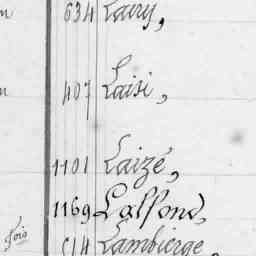 634 Lairy,
407 Laisi,
1101 Laizé,
1169 Lalfond,
514 Lambierge,